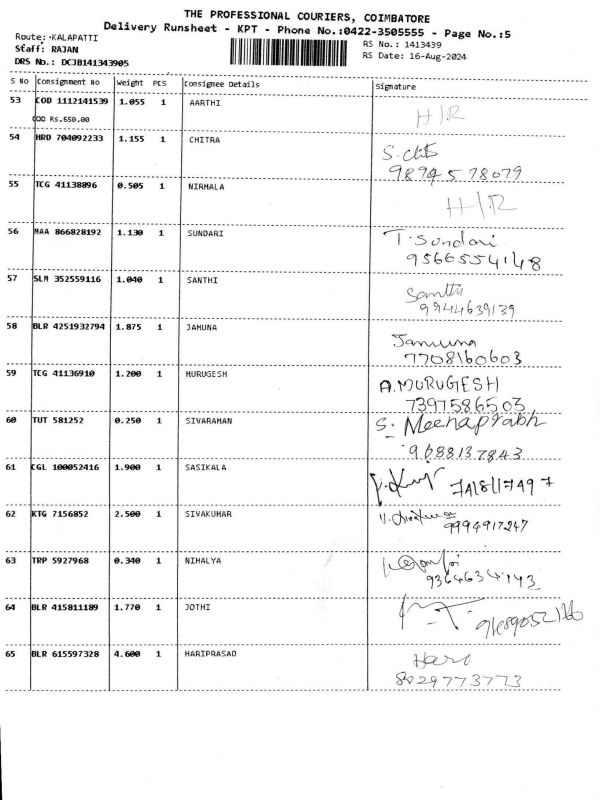 THE PROFESSIONAL COURIERS, COIMBATORE
Delivery Runsheet - KPT - Phone No.:0422-3505555 - Page No.:5
Route: -KALAPATTI
RS No.: 1413439
Staff: RAJAN
RS Date: 16-Aug-2024
DRS No.: DCJB141343905
S No Consignment No Weight PCS Consignee Details Signature
53 COD 1112141539 1.055 1 AARTHI H/R
COD Rs.650.00
54 HRD 704092233 1.155 1 CHITRA
9894578079
55 TCG 41138896 0.505 1 NIRMALA H/R
56 MAA 866828192 1.130 1 SUNDARI T. Sundari
9566554148
57 SLM 352559116 1.040 1 SANTHI Santhi
9944639139
58 BLR 4251932794 1.875 1 JAMUNA Jamuna
7708160603
59 TCG 41136910 1.200 1 MURUGESH A.MURUGESH
7397586503
60 TUT 581252 0.250 1 SIVARAMAN S. Meenaprabh
9688137843
61 CGL 100052416 1.900 1 SASIKALA
62 KTG 7156852 2.500 1 SIVAKUMAR
9994917247
63 TRP 5927968 0.340 1 NIHALYA
9364634143
64 BLR 415811189 1.770 1 JOTHI
65 BLR 615597328 4.600 1 HARIPRASAD Hari
8029773773